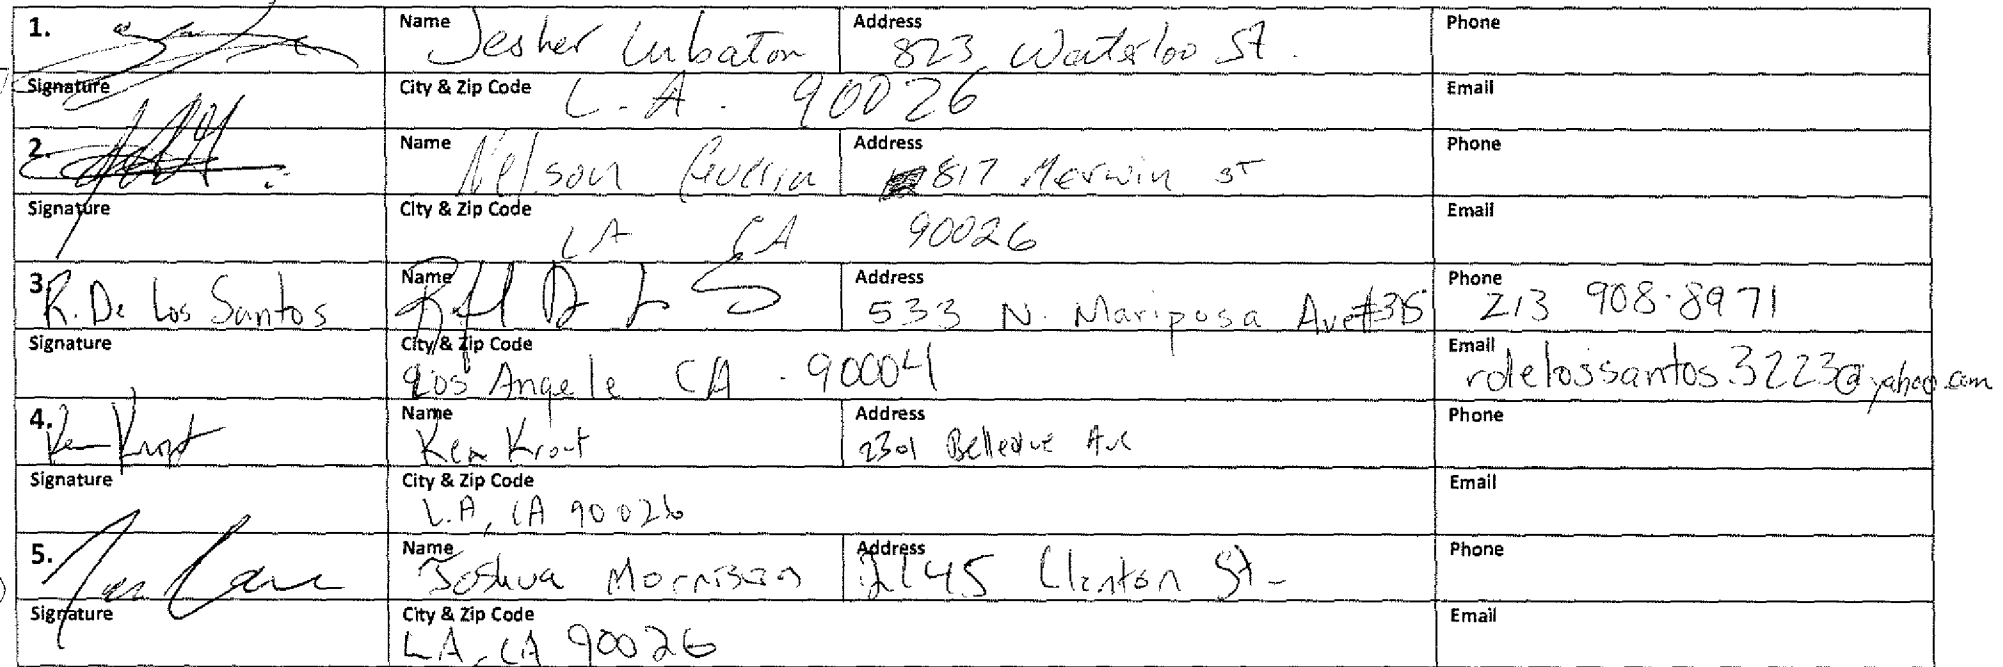 1. Name Jesher Lubaton Address 823 Waterloo St. Phone
Signature City & Zip Code L.A. 90026 Email
2. Name Nelson Address 817 Merwin ST Phone
Signature City & Zip Code LA CA 90026 Email
3. R. De Los Santos Name Address 533 N. Mariposa Ave #315 Phone 213 908-8971
Signature City & Zip Code Los Angele CA. 90004 Email rdelossantos3223@yahoo.com
4. Name Ken Krout Address 2301 Bellevue Ave Phone
Signature City & Zip Code L.A, CA 90026 Email
5. Name Joshua Morrison Address 2145 Clinton St. Phone
Signature City & Zip Code LA, CA 90026 Email